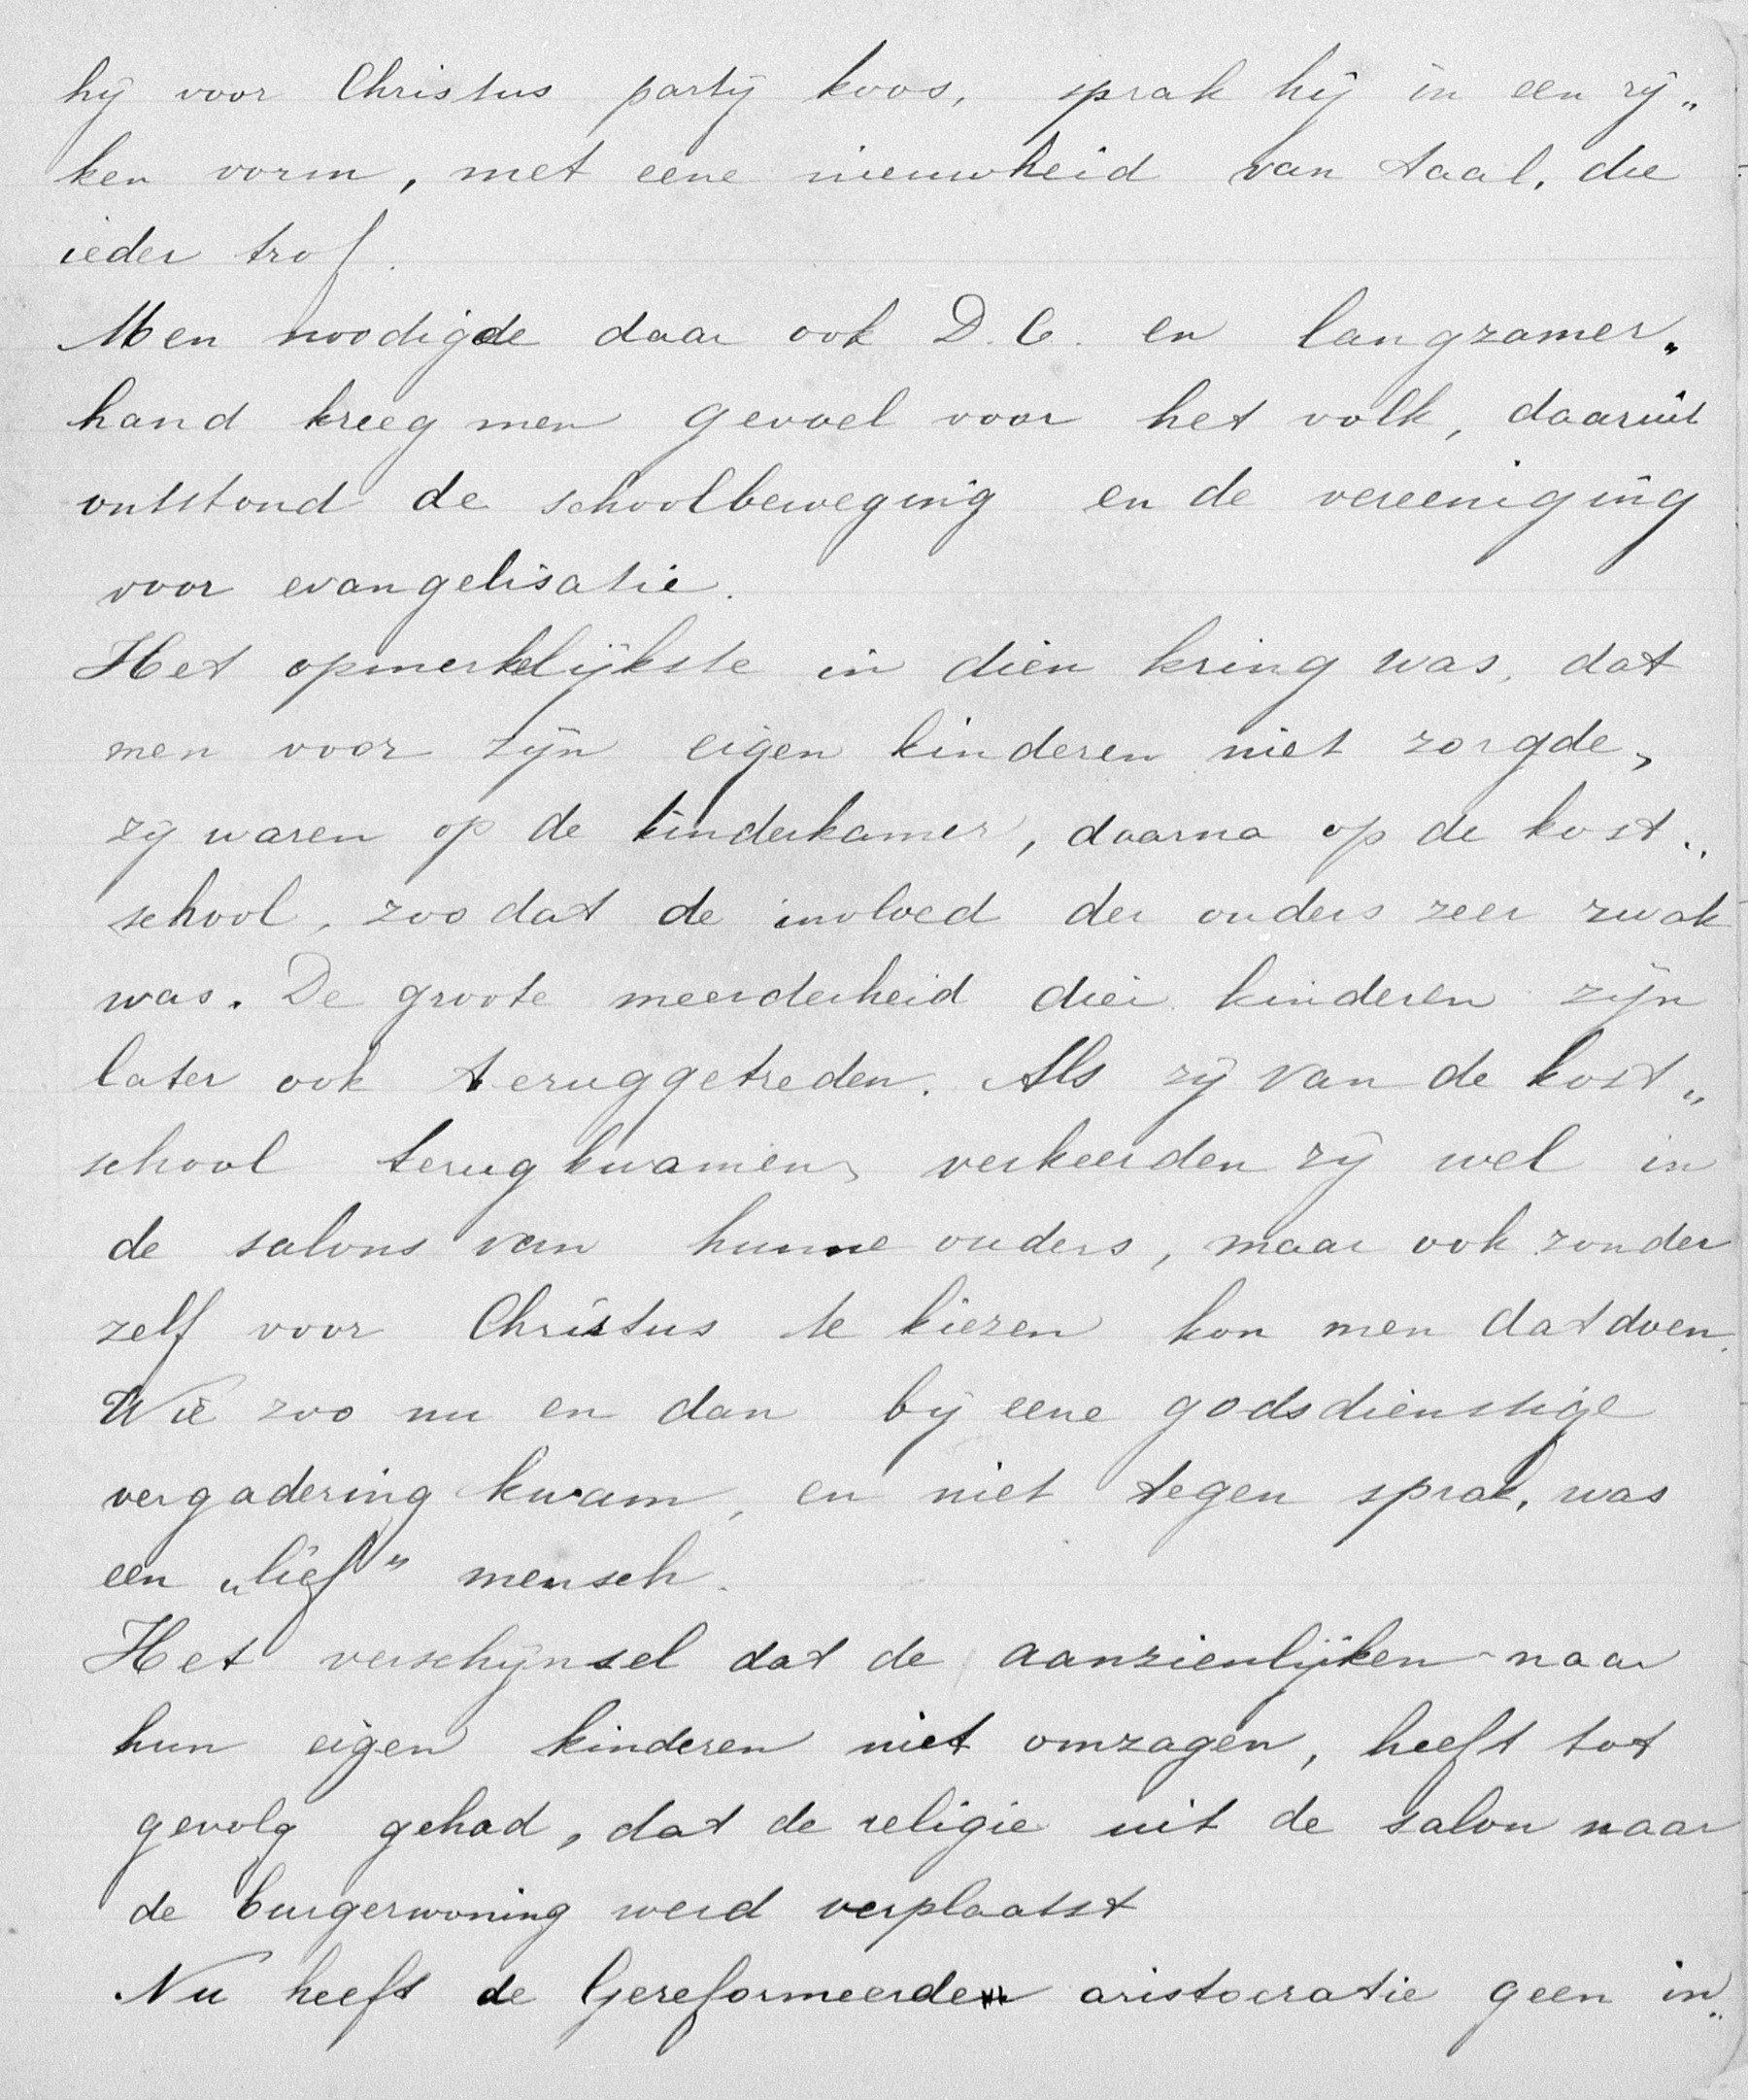 hij voor Christus partij koos, sprak hij in een rij„
ken vorm, met eene nieuwheid van taal, die
ieder trof.
Men noodigde daar ook D. C. en langzamer„
hand kreeg men gevoel voor het volk, daaruit
ontstond de schoolbeweging en de vereeniging
voor evangelisatie.
Het opmerkelijkste in dien kring was, dat
men voor zijn eigen kinderen niet zorgde,
zij waren op de kinderkamer, daarna op de kost„
school, zoodat de invloed der ouders zeer zwak
was. De groote meerderheid dier kinderen zijn
later ook teruggetreden. Als zij van de kost„
school terugkwamen, verkeerden zij wel in
de salons van hunne ouders, maar ook zonder
zelf voor Christus te kiezen kon men dat doen.
Wie zoo nu en dan bij eene godsdienstige
vergadering kwam, en niet tegen sprak, was
een „lief” mensch.
Het verschijnsel dat de aanzienlijken naar
hun eigen kinderen niet omzagen, heeft tot
gevolg gehad, dat de religie uit de salon naar
de burgerwoning werd verplaatst
Nu heeft de Gereformeerde aristocratie geen in„